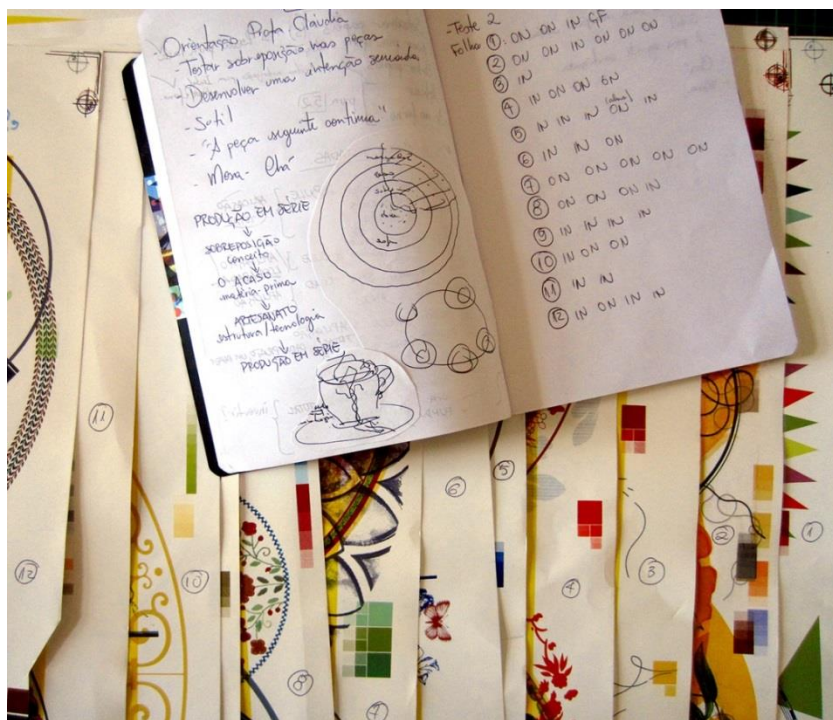 Orientação Profa Claudia
- Testar sobreposição nas peças
- Desenvolver uma intenção
- Sutil
- "A peça seguinte continua"
- Mesa - Chá
PRODUÇÃO EM SÉRIE
↓
SOBREPOSIÇÃO
conceito
↓
- O ACASO
matéria-prima
↓
ARTESANATO
estrutura/tecnologia
↓
PRODUÇÃO EM SÉRIE
- Teste 2
Folha ①: ON ON IN GF
② ON ON IN ON ON ON
③ IN
④ IN ON ON GN
⑤ IN IN IN ON IN
⑥ IN IN ON
⑦ ON ON ON ON ON
⑧ ON ON ON IN
⑨ IN IN IN IN
⑩ IN ON ON
⑪ IN IN
⑫ IN ON IN IN
12
11
10
8
7
6
5
4
3
2
1